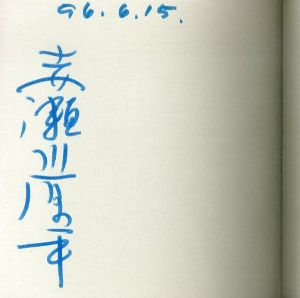 96.6.15.
赤瀬川原平